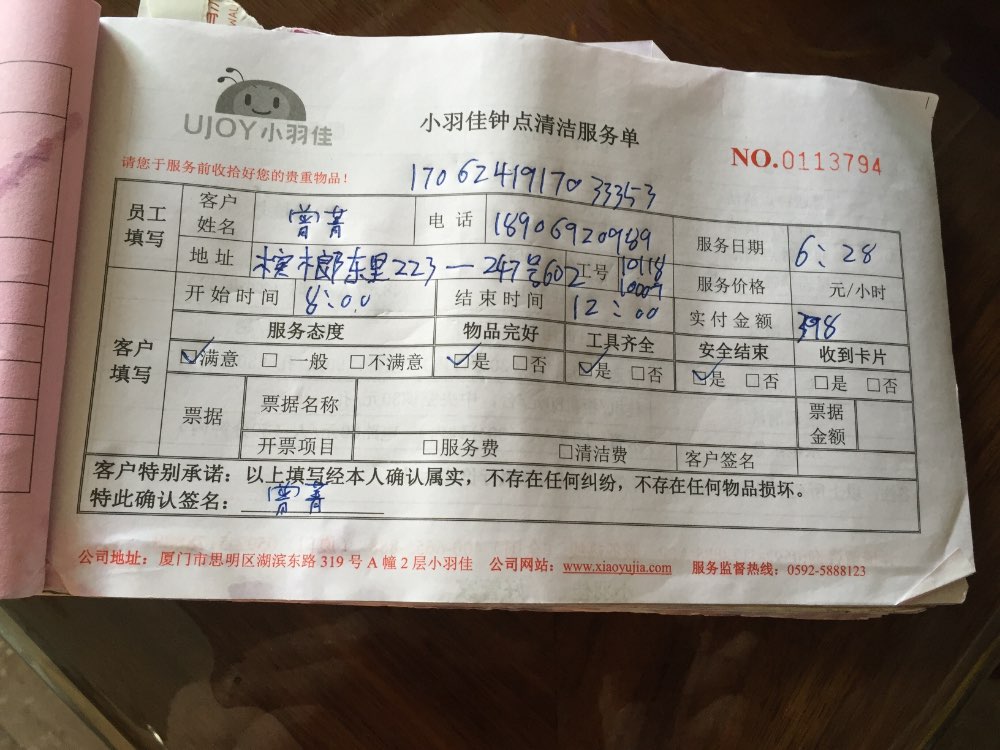 UJOY小羽佳
小羽佳钟点清洁服务单
NO.0113794
请您于服务前收拾好您的贵重物品！
17062419170 33353
员工填写 客户姓名 曾菁 电话 18906920989 服务日期 6：28
地址 槟榔东里223—247号602 工号 10118 10009 服务价格 元/小时
开始时间 8：00 结束时间 12：00 实付金额 398
客户填写 服务态度 物品完好 工具齐全 安全结束 收到卡片
☑满意 □一般 □不满意 ☑是 □否 ☑是 □否 ☑是 □否 □是 □否
票据 票据名称 票据金额
开票项目 □服务费 □清洁费 客户签名
客户特别承诺：以上填写经本人确认属实，不存在任何纠纷，不存在任何物品损坏。
特此确认签名：曾菁
公司地址：厦门市思明区湖滨东路 319 号 A 幢 2 层小羽佳 公司网站：www.xiaoyujia.com 服务监督热线：0592-5888123